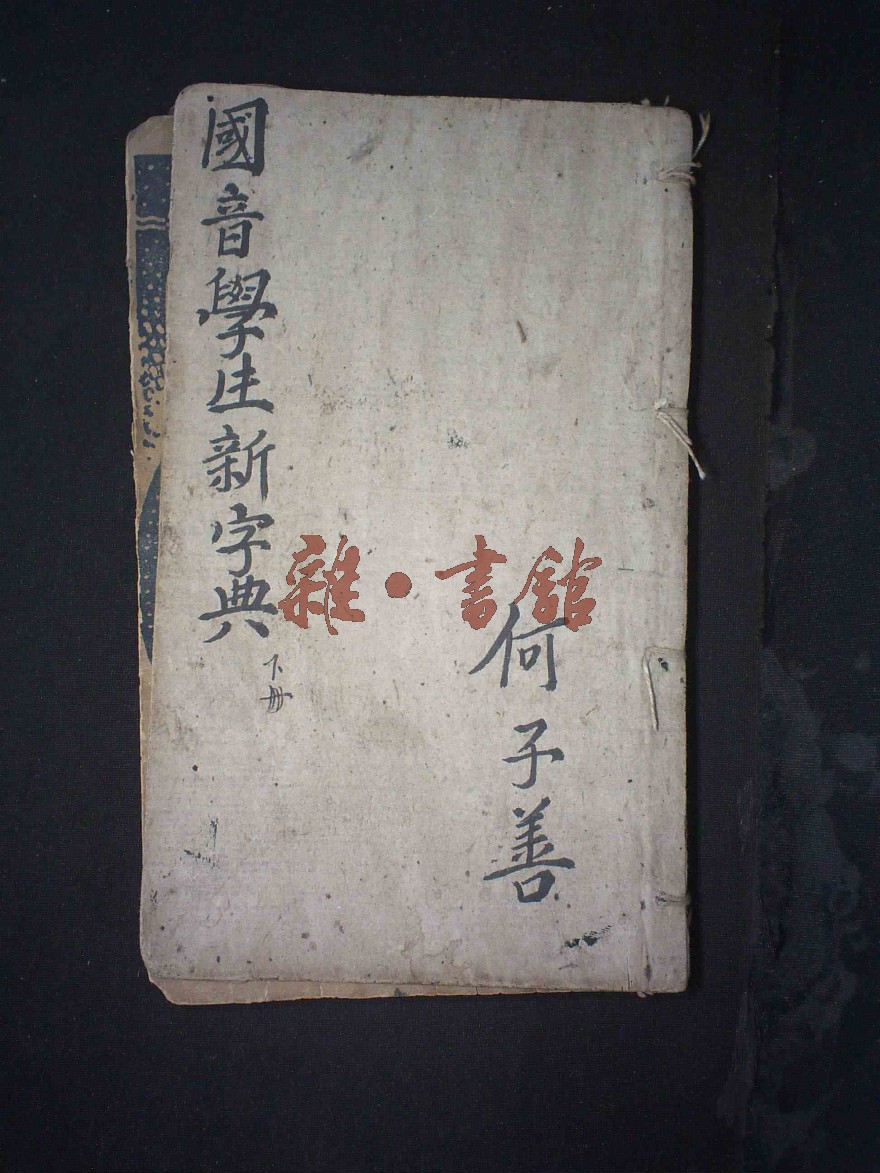 國音學生新字典
下册
何子善
雜·書館